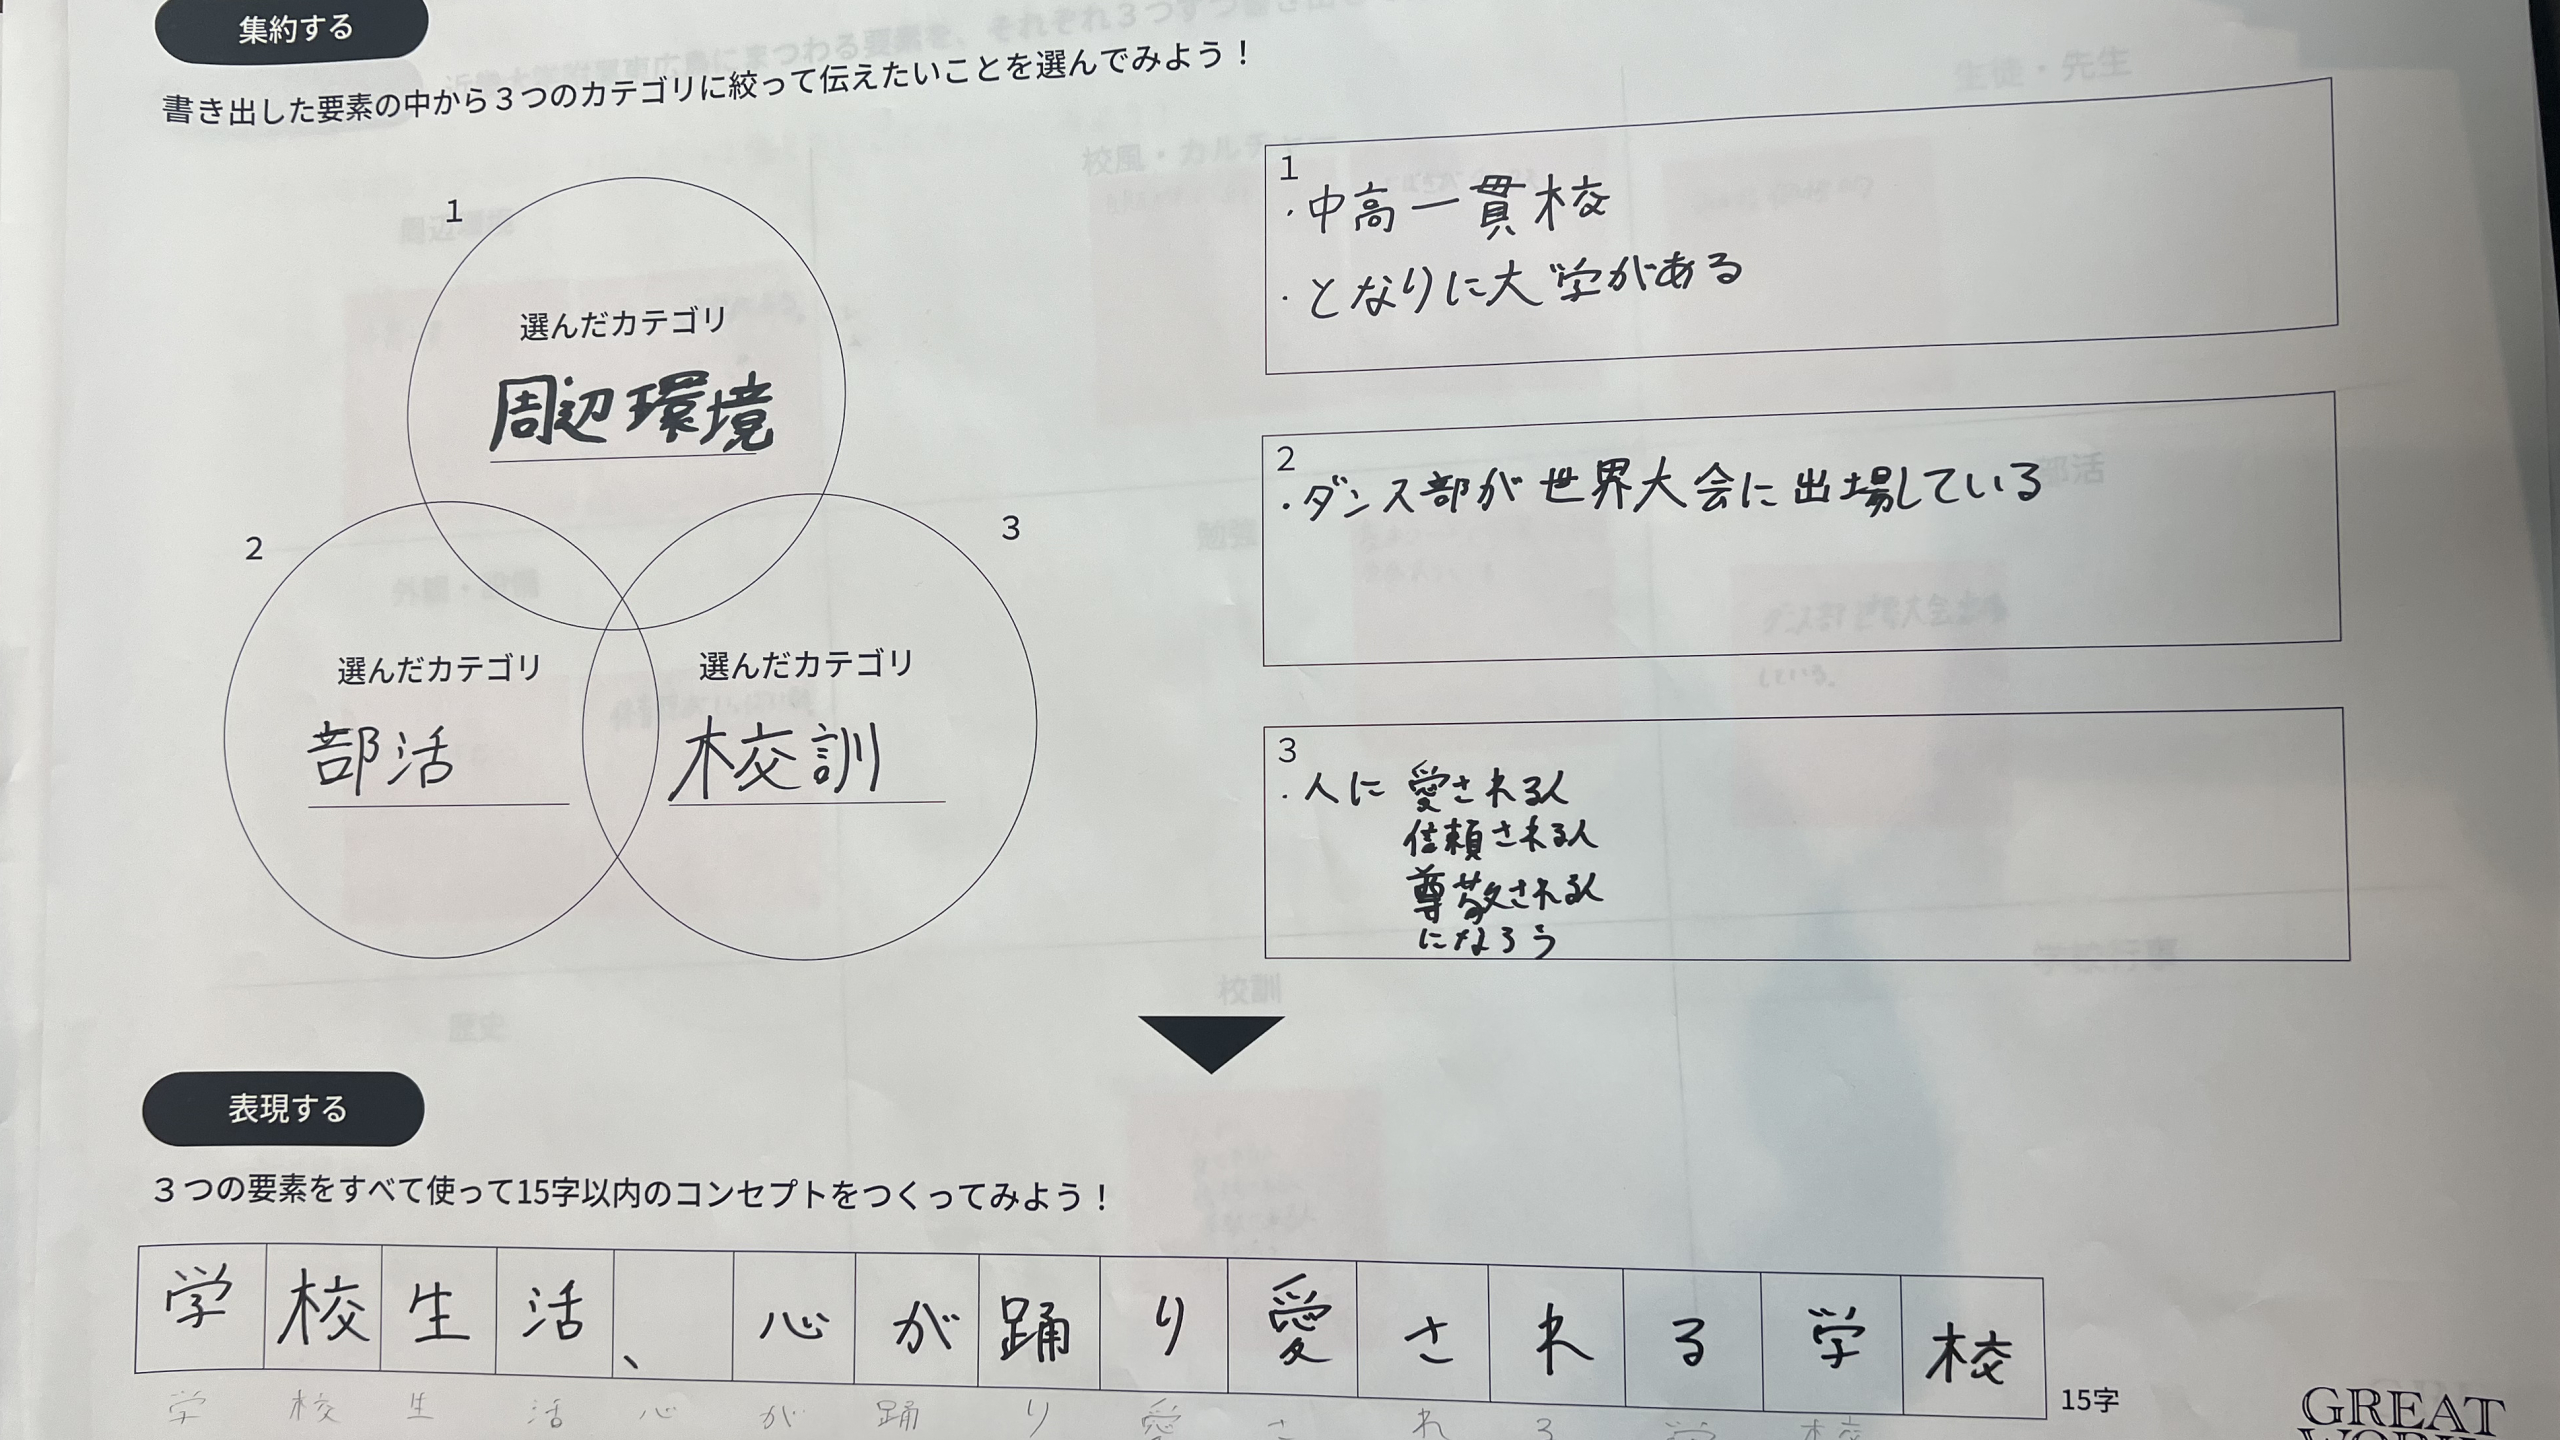 集約する
書き出した要素の中から３つのカテゴリに絞って伝えたいことを選んでみよう！
1
選んだカテゴリ
周辺環境
2
選んだカテゴリ
部活
3
選んだカテゴリ
校訓
1
・中高一貫校
・となりに大学がある
2
・ダンス部が世界大会に出場している
3
・人に 愛される人
信頼される人
尊敬される人
になろう
表現する
３つの要素をすべて使って15字以内のコンセプトをつくってみよう！
学校生活、心が踊り愛される学校
15字
学校生活心が踊り愛される学校
GREAT
生徒・先生
校風・カルチャー
周辺環境
部活
勉強
外観・設備
学校行事
校訓
歴史